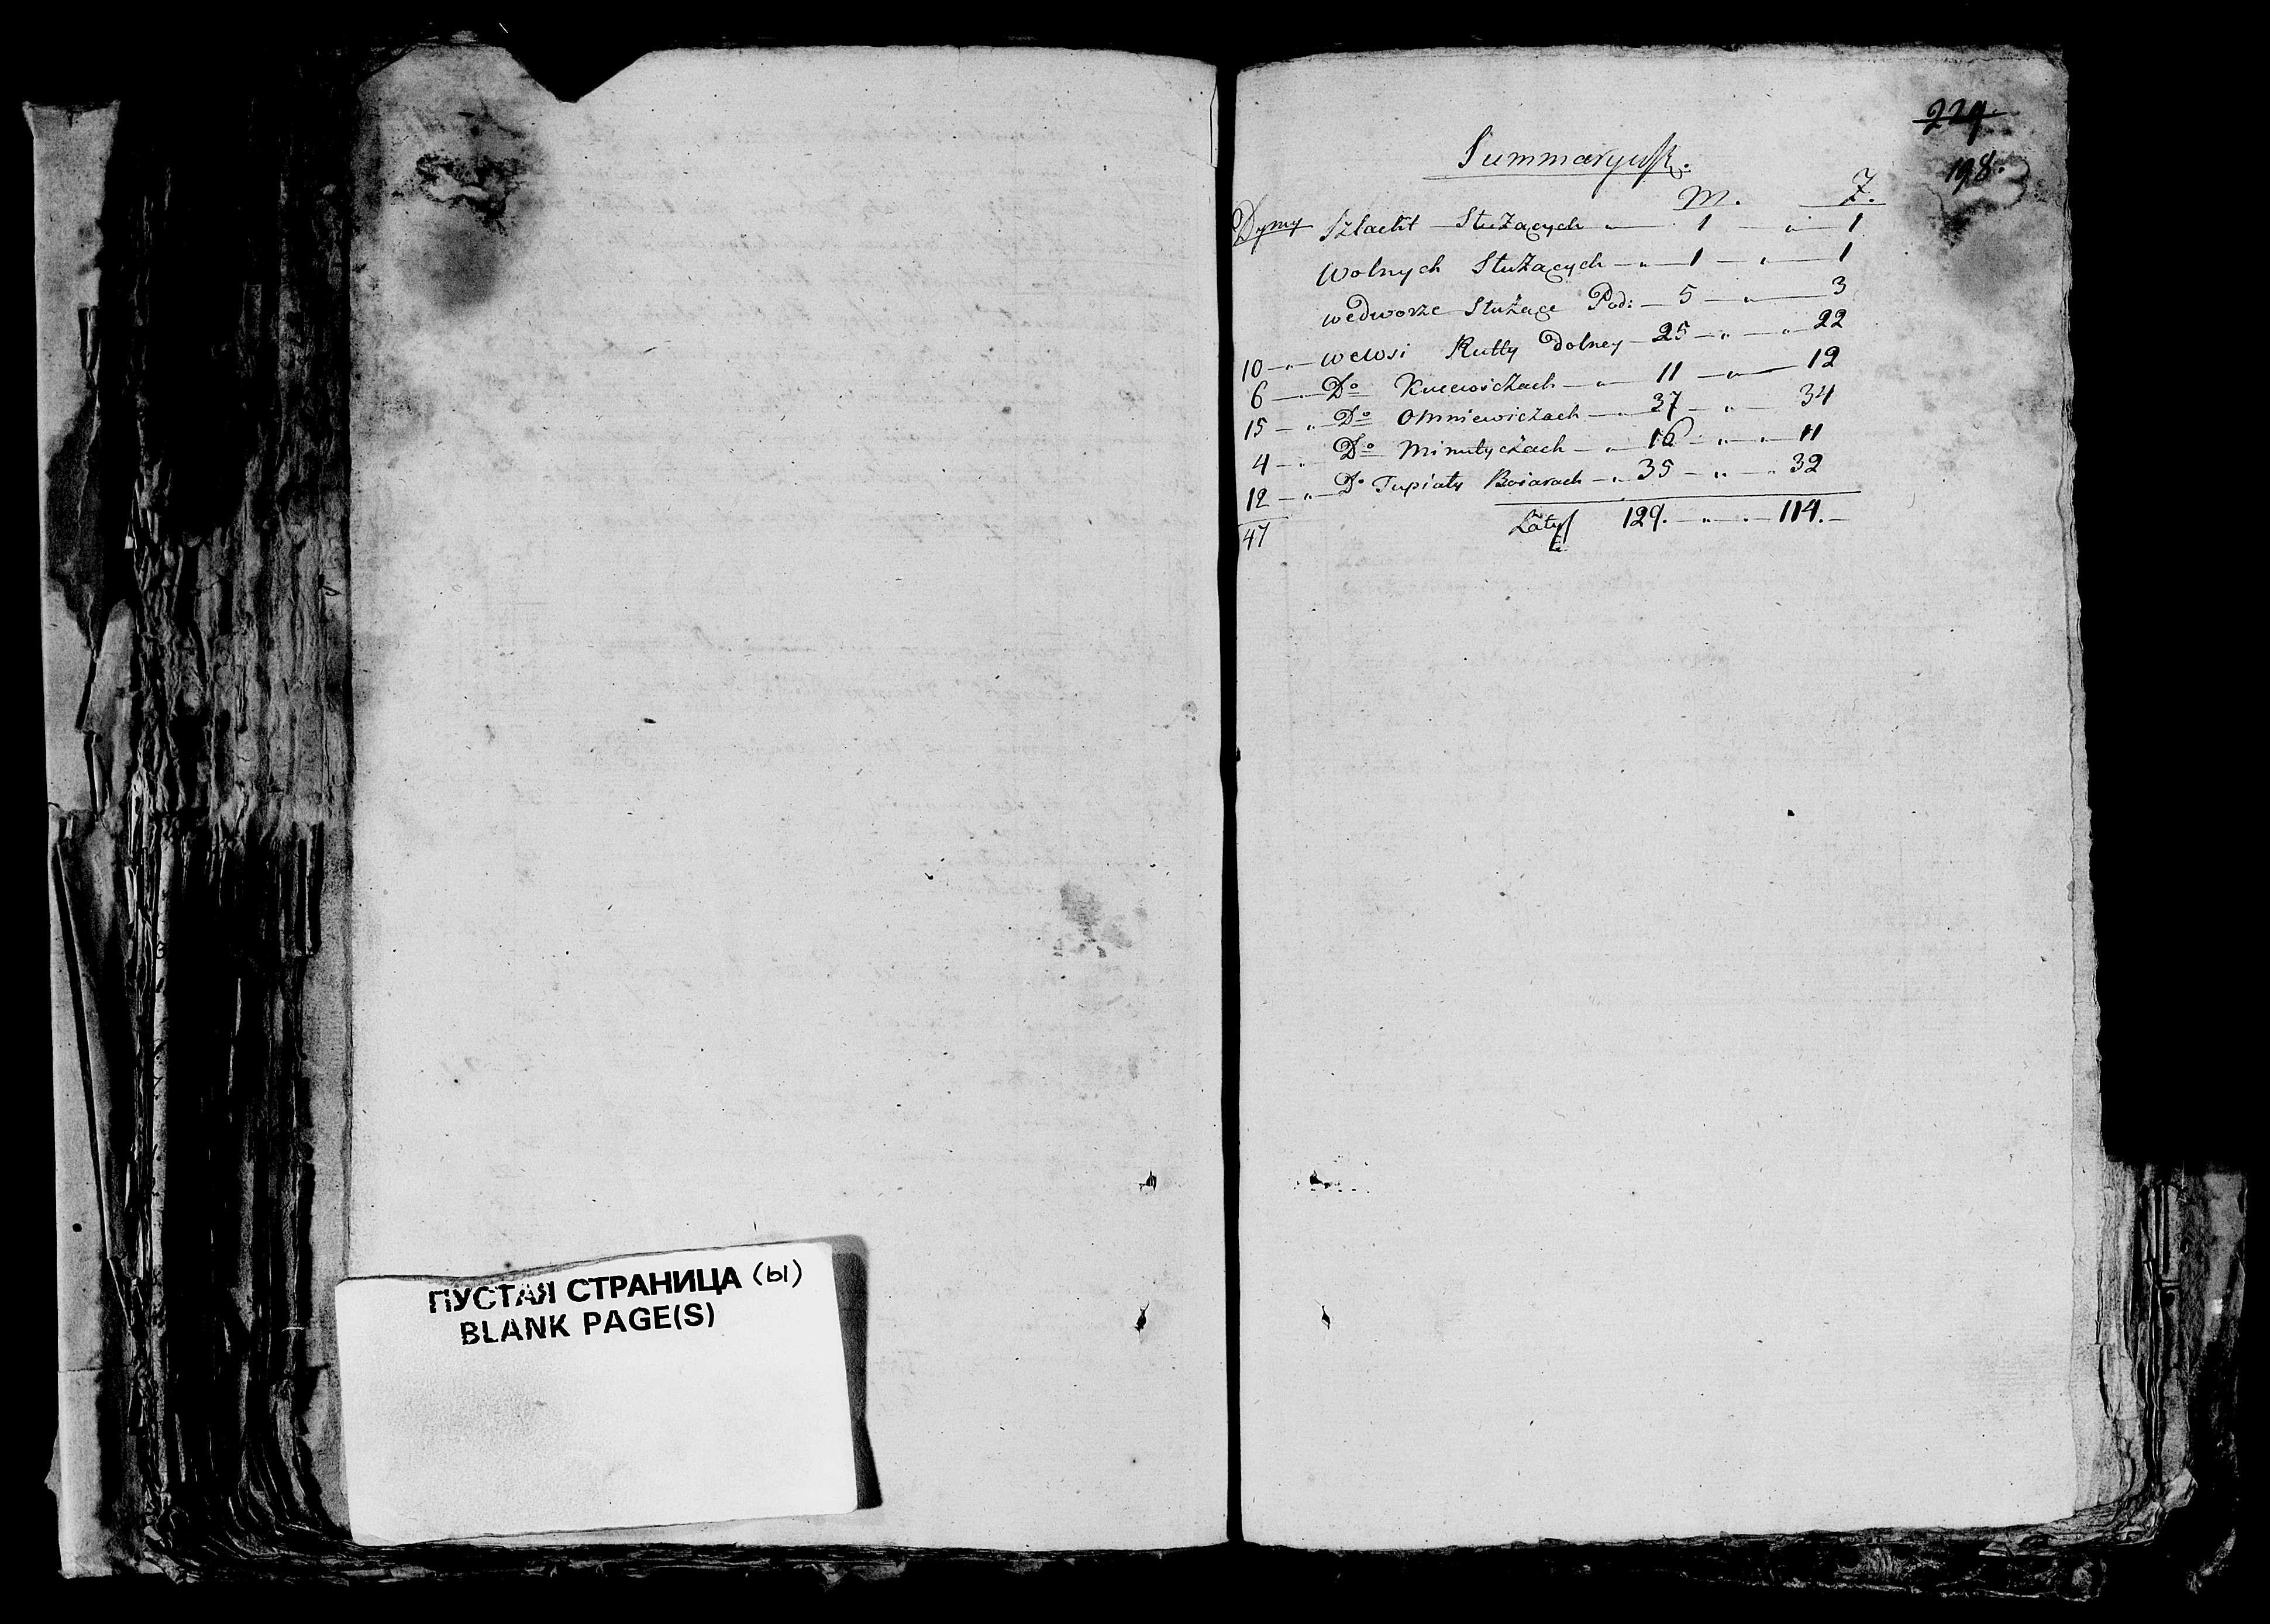 ПУСТАЯ СТРАНИЦА (ы)
BLANK PAGE(S)
229.
198.
Summaryusz.
M. Ż.
Dymy Szlacht Służących 1 1
Wolnych Służących 1 1
wedworze Służące Pod: 5 3
10 wewsi Rutty Dolney 25 22
6 Do Kucewiczach 11 12
15 Do Omniewiczach 37 34
4 Do Minutyczach 16 11
12 Do Tupiały Boiarach 35 32
47 129. 114.